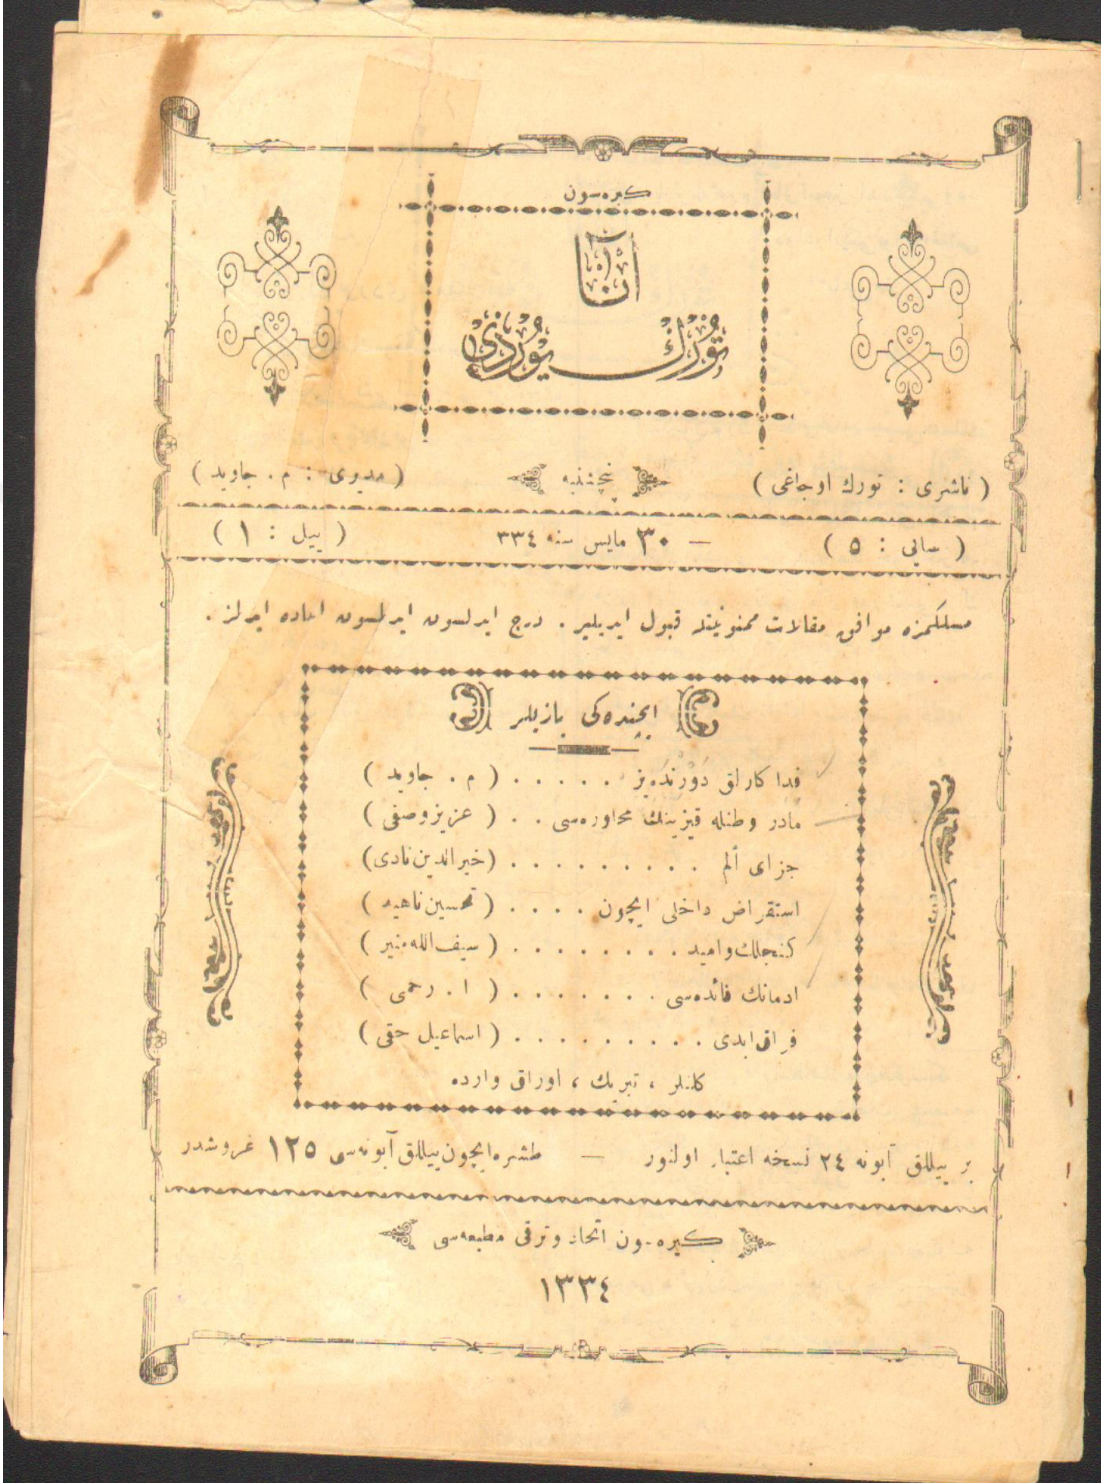 كيره‌سون
آنا
تورك يوردى
( ناشرى : تورك اوجاغى )
پنچشنبه
( مديرى : م . جاويد )
( سايى : ٥ )
— ٣٠ مايس سنه ٣٣٤
( ييل : ١ )
مسلكمزه موافق مقالات ممنونيتله قبول ايديلير . درج ايدلسون ايدلمسون اعاده ايدلز .
ايچنده‌كى يازيلر
فداكارلق دَوْرَنْدَه‌يز . . . . . ( م . جاويد )
مادر وطنله قيزينك محاوره‌سى . . ( عزيز وصفى )
جزاى ألم . . . . . . . . . (خيرالدين نادى)
استقراض داخلى ايچون . . . . ( تحسين ناهيد )
كنجلك و اميد . . . . . . . . ( سيف الله منير )
ادمانك فائده‌سى . . . . . . . ( ا . رحمى )
فراق ابدى . . . . . . . . . ( اسماعيل حقى )
كلنلر ، تبريك ، اوراق وارده
بر ييللق آبونه ٢٤ نسخه اعتبار اولنور — طشره ايچون ييللق آبونه‌سى ١٢٥ غروشدر
كيره‌سون اتحاد وترقى مطبعه‌سى
١٣٣٤